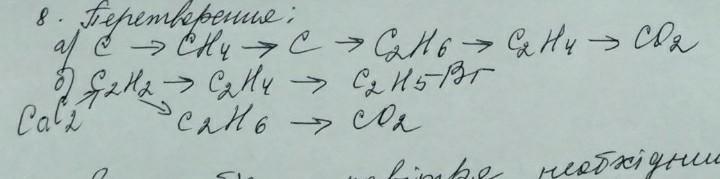 8. Перетворення:
а) C → CH4 → C → C2H6 → C2H4 → CO2
б) C2H2 → C2H4 → C2H5Br
CaC2 ↗ ↘ C2H6 → CO2
необхідни